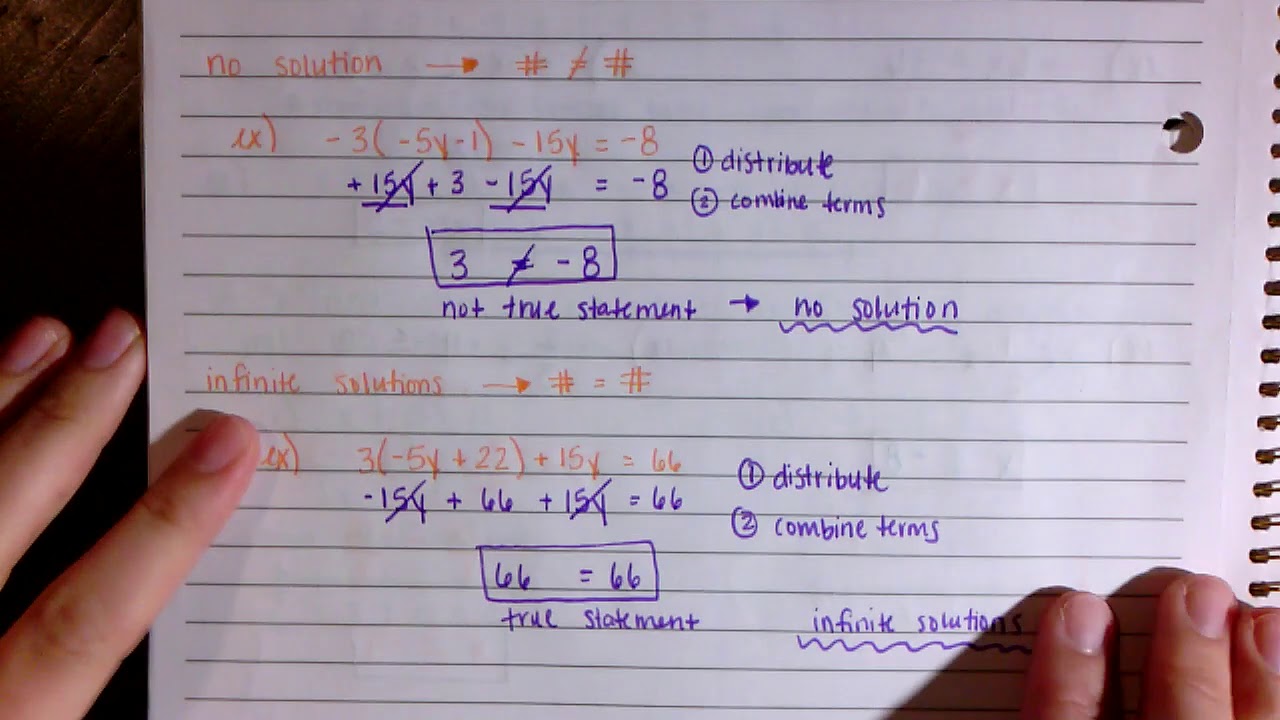 no solution → # ≠ #
ex) -3(-5y-1) -15y = -8
① distribute
+15y + 3 -15y = -8
② combine terms
3 ≠ -8
not true statement → no solution
infinite solutions → # = #
ex) 3(-5y + 22) + 15y = 66
① distribute
-15y + 66 + 15y = 66
② combine terms
66 = 66
true statement infinite solutions